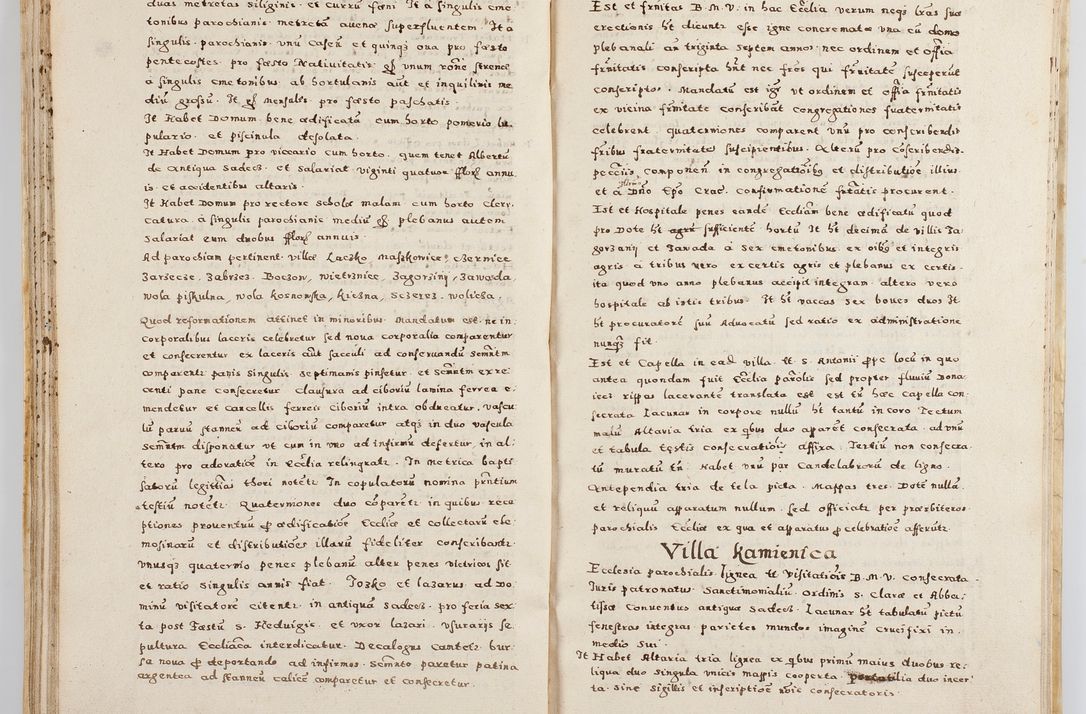 duas metretas siliginis et currũ fæni It â singulis cme
tonibus parochianis metretã avenæ superfluentem It â
singulis parochianis vnũ caseũ et quinq3 oua pro fæsto
pentecostes pro fæsto Nativitatis unum
â singulis cmetonibus ab hortulanis aũt et inquilinis me
diũ grossũ It mensalis pro fæsto paschatis
It Habet Domum bene ædificatã cum horto pomerio lu
pulario et piscinula desolata
It Habet Domum pro vicario cum horto quem tenet Albertũ
de Antiqua Sadecz et salariat viginti quatuor annu
is et accidentibus altaris
It Habet Domum pro rectore scholæ malam cum horto Cleri
catura â singulis parochianis mediũ plebanus autem
salariat eum duobus annuis
Ad parochiam pertinent villæ Laczko Maszkovice Czernice
Zarzecze, Zabrzez Boczow, Wietrznice, Zagorzini, Zawada,
Wola piskulna, Wola kosnowska, kiczna, Sczerez, Woliczsa.
Quod reformationem attinet in minoribus Mandatum est ne in
corporalibus laceris celebretur sed nova corporalia comparentur
et consecrentur ex laceris aũt sacculi ad conservandũ
comparenti panis singulis septimanis pinsetur et ex re
centi pane consecretur Clausura ad ciboriũ lamina ferrea e
mendetur et cancellis ferreis ciboriũ intra obducatur, vascu
lũ parvũ stanneũ ad ciboriũ comparetur atq3 in duo vascula
disponatur vt cum in vno ad infirmũ defertur in al
tero pro adoratiõe in Ecclia relinquatr In metrica bapti
satorũ thori notetr In copulatorũ nomina
testiũ notẽtr Quaterniones duo cõparẽtr in quibus rece
ptiones proventũ ædificatiõe Eccliæ et collectarũ ele
mosinarũ et distributiões illarũ fideliter conscribantr
vnusq3 quaternio penes plebanũ alter penes victricos sit
et ratio singulis annis fiat Jozko et lazarus ad Do
minũ visitatorẽ citentr in antiquã Sadecz pro feria sex
ta post Fæstũ S. Hedvigis et vxor lazari vsuraris se
pultura Eccliãca interdicatur Decalogus Cantetr bur
sa nova deportando ad infirmos paretur patina
argentea ad stanneũ calicẽ comparetur et consecretur

Est et frnitas B. M. V. in hac Ecclia verum neq3 lras suæ
erectionis ht dicuntr esse igne concrematæ vna cũ domo
plebanali an triginta septem annos nec ordinem et offia
frnitatis conscripta hnt nec frês qui frnitatẽ susceperũt
conscriptos Mandatũ est igr vt ordinem et offia frnitatis
ex vicina frnitate conscribãt congregationes fraternitatis
celebrent quaterniones comparent vnũ pro conscribendis
fribus fraternitatẽ suscipientibus Alterũ pro cõscribendis
componen̄ in congregatiõib3 et distributiõe illius
et â Dño Epo Crac confirmationẽ frnitatis procurent
Est et Hospitale penes eandẽ Eccliam bene ædificatũ quod
pro Dote ht sufficientẽ hortũ It ht decimã de villis Za
gorzanij et Zawada â sex cmetonibus ex oib3 et integris
agris â tribus vero ex certis agris et plebanus ex certis
ita quod vno anno plebanus accipit integram altero vero
hospitale ab istis tribus It ht vaccas sex boves duos It
ht procuratorẽ suũ Advocatũ sed ratio ex administratione
nunq3 fit
Est et Capella in ead villa tt S. Antonii locũ in quo
antea quondam fuit Ecclia sed propter fluviũ Dona
iecz rippas lacerantẽ translata est est tñ hæc capella con
secrata Lacunar in corpore nullũ ht tantũ in coro Tectum
malũ Altaria tria ex qbus duo apparẽt consecrata ad vnũ
et tabula testis consecratiõis affixa Tertiũ non consecra
tũ muratũ tñ Habet vnũ par Candelabrorũ de ligno
Antependia tria de tela picta Mappas tres Dotẽ nullã
et reliquũ apparatum nullum sed officiatr per præsbiteros
parochialis Eccliæ ex qua et apparatus celebratiõe afferũtr
Villa kamienica
Ecclesia parochialis lignea tt Visitatiõis B. M. V. consecrata
Juris patronatus Sanctimonialiũ Ordinis S. Claræ et Abba
tissæ Conventus antiquæ Sadecz Lacunar ht tabulatũ pictũ
fenestras integras parietes mundos imaginẽ Crucifixi in
medio sui
It Habet Altaria tria lignea ex qbus primũ maius duobus re
liqua duo singula vnicis mappis cooperta portatilia duo incer
ta sine sigillis et inscriptiõe consecratoris